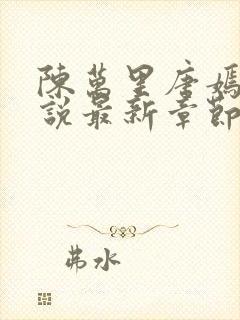 陳萬里唐嫣
說最新章節
弗水